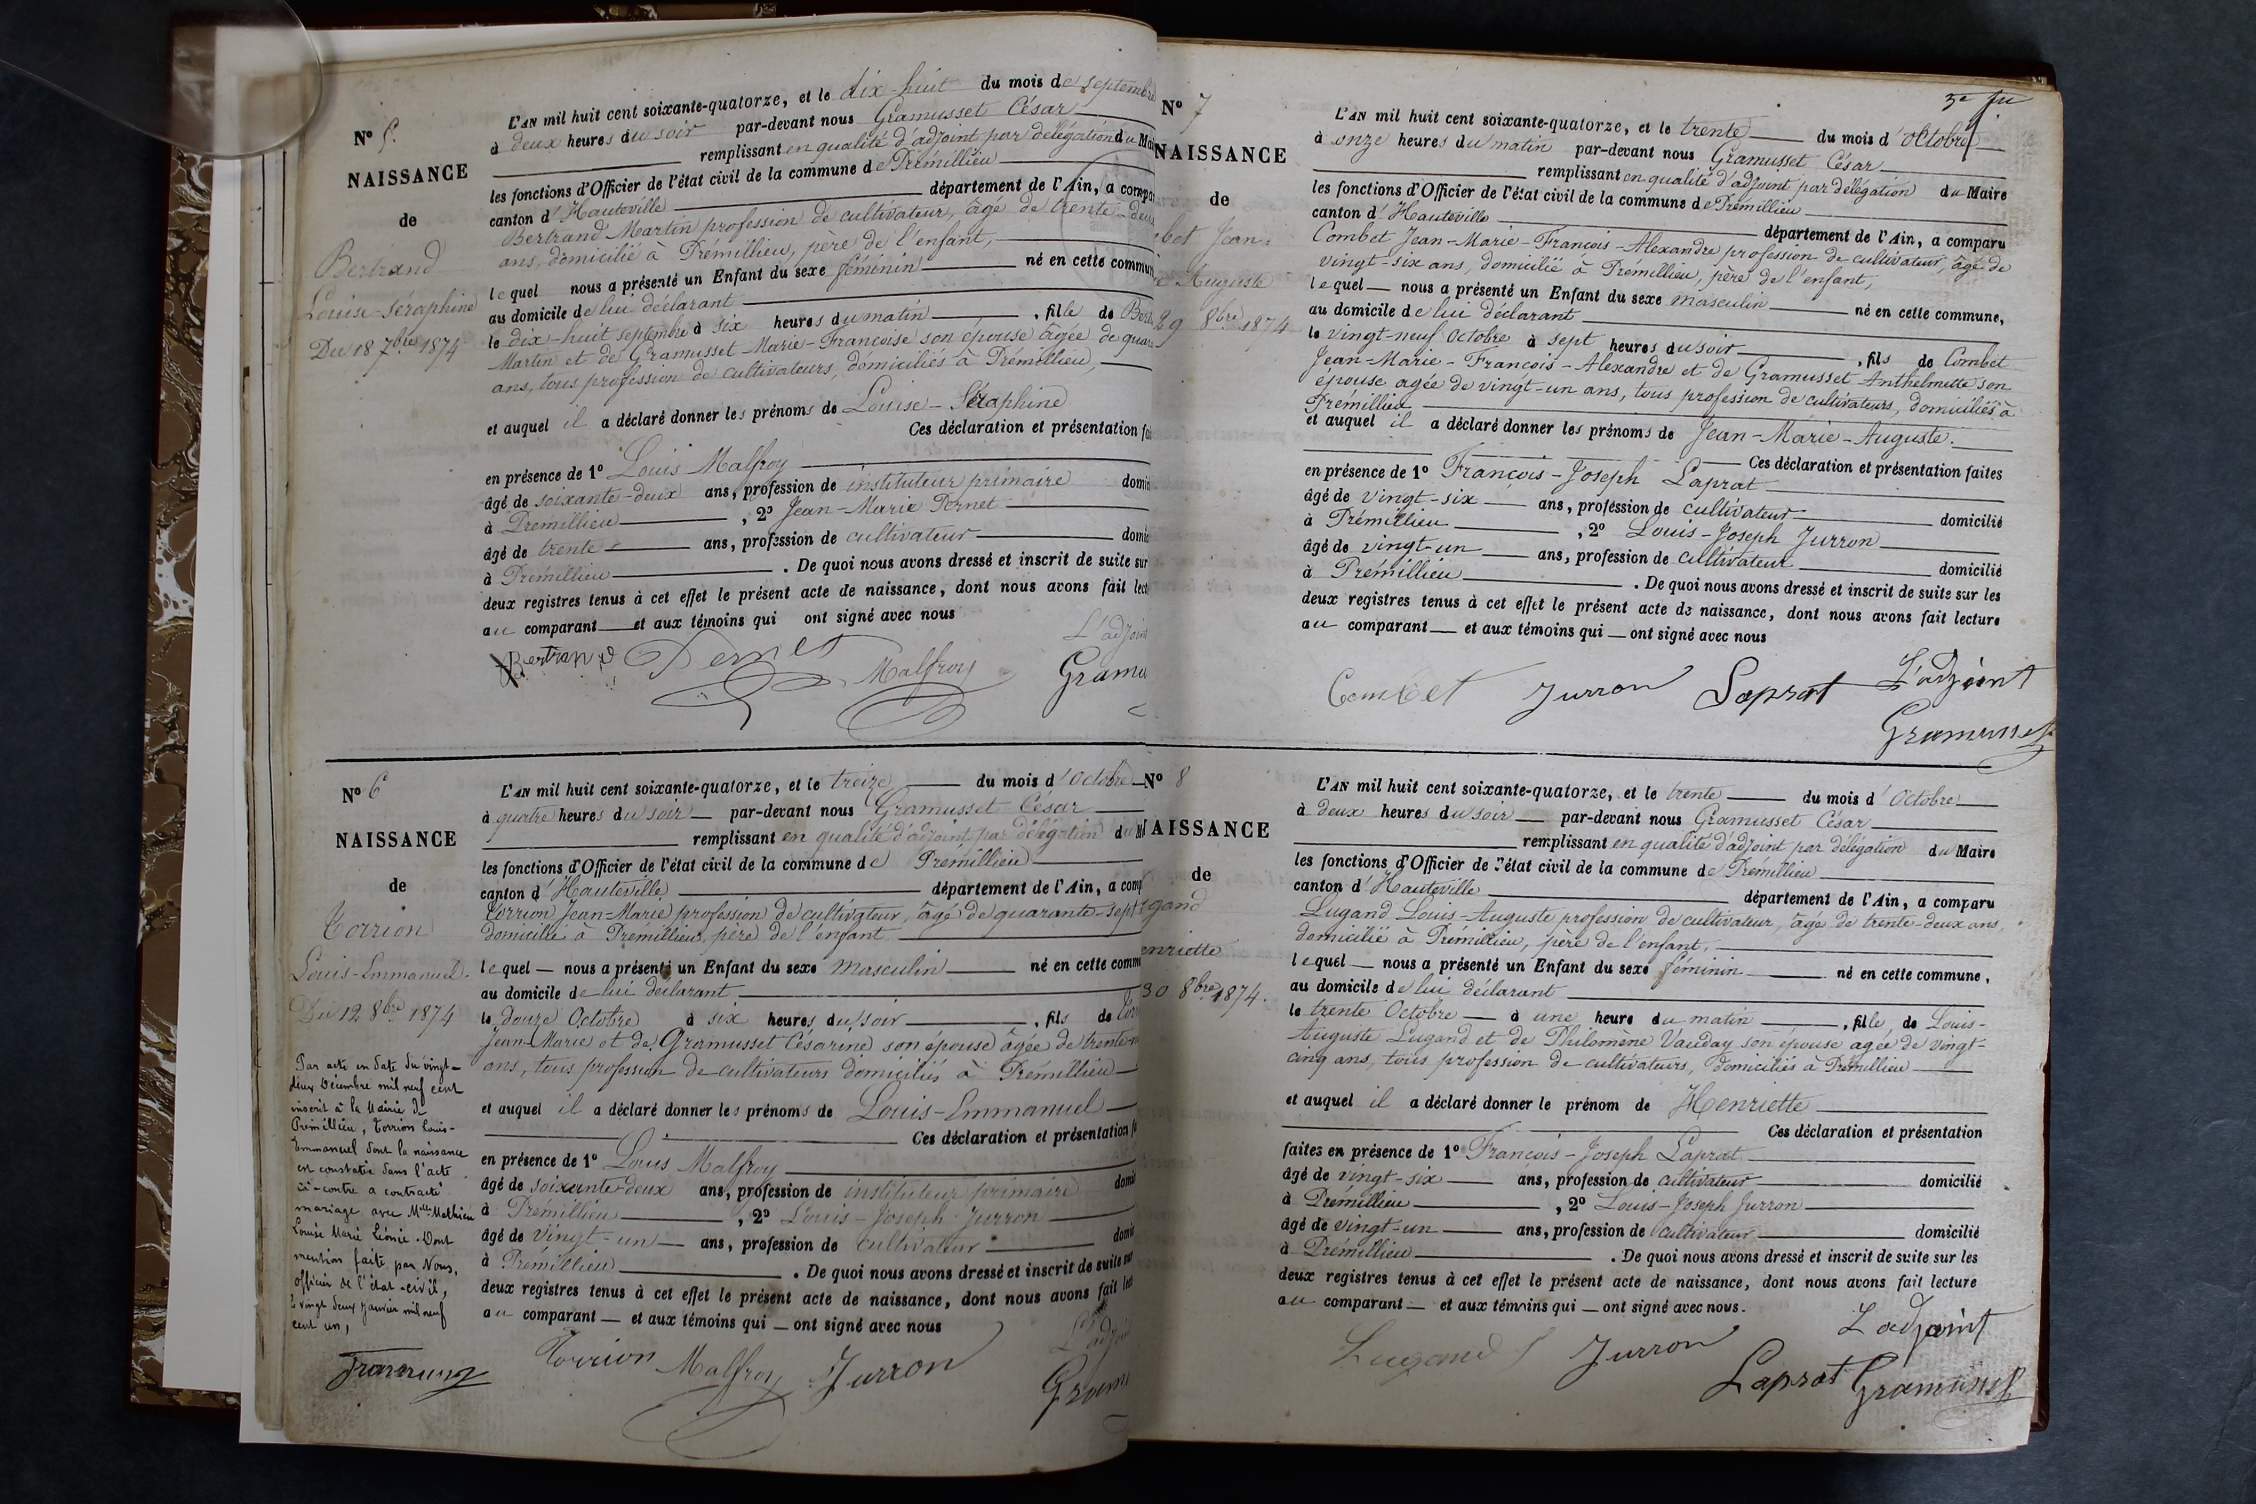 N° 5.
NAISSANCE
de
Bertrand
Louise-Séraphine
Du 18 7bre 1874
L'AN mil huit cent soixante-quatorze, et le dix-huit du mois de septembre
à deux heures du soir par-devant nous Gramusset César
remplissant en qualité d'adjoint par délégation du Mai
les fonctions d'Officier de l'état civil de la commune de Prémillieu
canton d'Hauteville département de l'Ain, a compar
Bertrand Martin profession de cultivateur, âgé de trente-deux
ans, domicilié à Prémillieu, père de l'enfant,
lequel nous a présenté un Enfant du sexe féminin né en cette commun
au domicile de lui déclarant
le dix-huit septembre à six heures du matin, fille de Bertr
Martin et de Gramusset Marie-Françoise son épouse âgée de quara
ans, tous profession de cultivateurs, domiciliés à Prémillieu,
et auquel il a déclaré donner les prénoms de Louise-Séraphine
Ces déclaration et présentation fai
en présence de 1° Louis Malfroy
âgé de soixante-deux ans, profession de instituteur primaire domici
à Prémillieu, 2° Jean-Marie Pernet
âgé de trente ans, profession de cultivateur domici
à Prémillieu. De quoi nous avons dressé et inscrit de suite sur
deux registres tenus à cet effet le présent acte de naissance, dont nous avons fait lect
au comparant et aux témoins qui ont signé avec nous
L'adjoin
Bertrand Pernet Malfroy Gramu
N° 6
NAISSANCE
de
Torrion
Louis-Emmanuel.
Du 12 8bre 1874
Par acte en date du vingt-
deux Décembre mil neuf cent
inscrit à la Mairie de
Prémillieu, Torrion Louis-
Emmanuel dont la naissance
est constatée dans l'acte
ci-contre a contracté
mariage avec Mlle Mathieu
Louise Marie Léonie. Dont
mention faite par Nous,
officier de l'état-civil,
le vingt deux Janvier mil neuf
cent un,
L'AN mil huit cent soixante-quatorze, et le treize du mois d'Octobre
à quatre heures du soir par-devant nous Gramusset César
remplissant en qualité d'adjoint par délégation du M
les fonctions d'Officier de l'état civil de la commune de Prémillieu
canton d'Hauteville département de l'Ain, a comp
Torrion Jean-Marie profession de cultivateur, âgé de quarante-sept
domicilié à Prémillieu, père de l'enfant
lequel nous a présenté un Enfant du sexe masculin né en cette comm
au domicile de lui déclarant
le douze Octobre à six heures du soir, fils de Tor
Jean-Marie et de Gramusset Césarine son épouse âgée de trente-
ans, tous profession de cultivateurs domiciliés à Prémillieu
et auquel il a déclaré donner les prénoms de Louis-Emmanuel
Ces déclaration et présentation f
en présence de 1° Louis Malfroy
âgé de soixante-deux ans, profession de instituteur primaire domi
à Prémillieu, 2° Louis-Joseph Jurron
âgé de vingt-un ans, profession de cultivateur domi
à Prémillieu. De quoi nous avons dressé et inscrit de suite sur
deux registres tenus à cet effet le présent acte de naissance, dont nous avons fait lect
au comparant et aux témoins qui ont signé avec nous
L'adjoi
Torrion Malfroy Jurron Gramu
N° 7
NAISSANCE
de
bet Jean-
e Auguste
29 8bre 1874
L'AN mil huit cent soixante-quatorze, et le trente du mois d'Octobre
à onze heures du matin par-devant nous Gramusset César
remplissant en qualité d'adjoint par délégation du Maire
les fonctions d'Officier de l'état civil de la commune de Prémillieu
canton d'Hauteville département de l'Ain, a comparu
Combet Jean-Marie-François-Alexandre profession de cultivateur, âgé de
vingt-six ans, domicilié à Prémillieu, père de l'enfant,
lequel nous a présenté un Enfant du sexe masculin né en cette commune,
au domicile de lui déclarant
le vingt-neuf Octobre à sept heures du soir, fils de Combet
Jean-Marie-François-Alexandre et de Gramusset Anthelmette son
épouse agée de vingt-un ans, tous profession de cultivateurs, domiciliés à
Prémillieu
et auquel il a déclaré donner les prénoms de Jean-Marie-Auguste.
Ces déclaration et présentation faites
en présence de 1° François-Joseph Laprat
âgé de vingt-six ans, profession de cultivateur domicilié
à Prémillieu, 2° Louis-Joseph Jurron
âgé de vingt-un ans, profession de cultivateur domicilié
à Prémillieu. De quoi nous avons dressé et inscrit de suite sur les
deux registres tenus à cet effet le présent acte de naissance, dont nous avons fait lecture
au comparant et aux témoins qui ont signé avec nous
Combet Jurron Laprat L'adjoint
Gramusset
N° 8
NAISSANCE
de
gand
enriette
30 8bre 1874.
L'AN mil huit cent soixante-quatorze, et le trente du mois d'Octobre
à deux heures du soir par-devant nous Gramusset César
remplissant en qualité d'adjoint par délégation du Maire
les fonctions d'Officier de l'état civil de la commune de Prémillieu
canton d'Hauteville département de l'Ain, a comparu
Lugand Louis-Auguste profession de cultivateur, âgé de trente-deux ans,
domicilié à Prémillieu, père de l'enfant,
lequel nous a présenté un Enfant du sexe féminin né en cette commune,
au domicile de lui déclarant
le trente Octobre à une heure du matin, fille de Louis-
Auguste Lugand et de Philomène Vauday son épouse agée de vingt-
cinq ans, tous profession de cultivateurs, domiciliés à Prémillieu
et auquel il a déclaré donner le prénom de Henriette
Ces déclaration et présentation
faites en présence de 1° François-Joseph Laprat
âgé de vingt-six ans, profession de cultivateur domicilié
à Prémillieu, 2° Louis-Joseph Jurron
âgé de vingt-un ans, profession de cultivateur domicilié
à Prémillieu. De quoi nous avons dressé et inscrit de suite sur les
deux registres tenus à cet effet le présent acte de naissance, dont nous avons fait lecture
au comparant et aux témoins qui ont signé avec nous.
L'adjoint
Lugand Jurron Laprat Gramusset